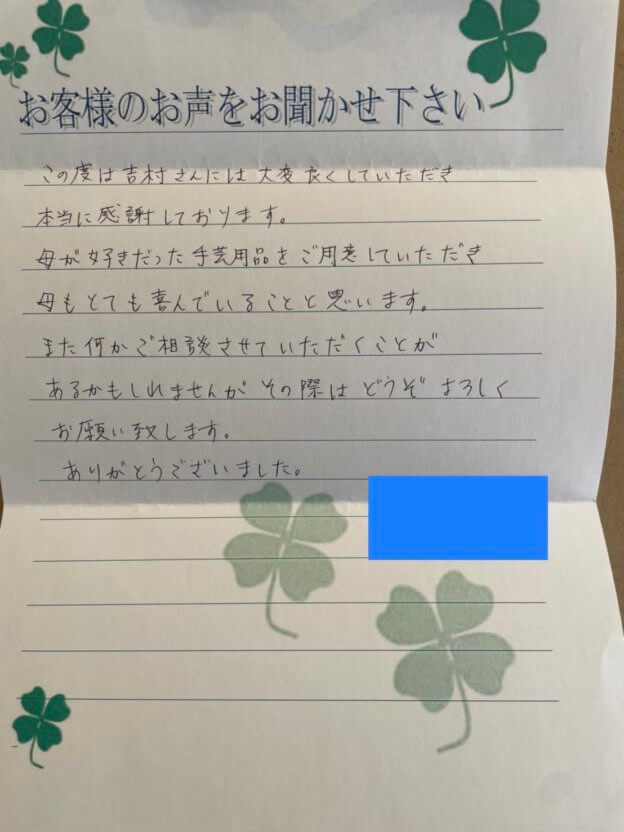 お客様のお声をお聞かせ下さい
この度は吉村さんには大変良くしていただき
本当に感謝しております。
母が好きだった手芸用品をご用意していただき
母もとても喜んでいることと思います。
また何かご相談させていただくことが
あるかもしれませんがその際はどうぞよろしく
お願い致します。
ありがとうございました。